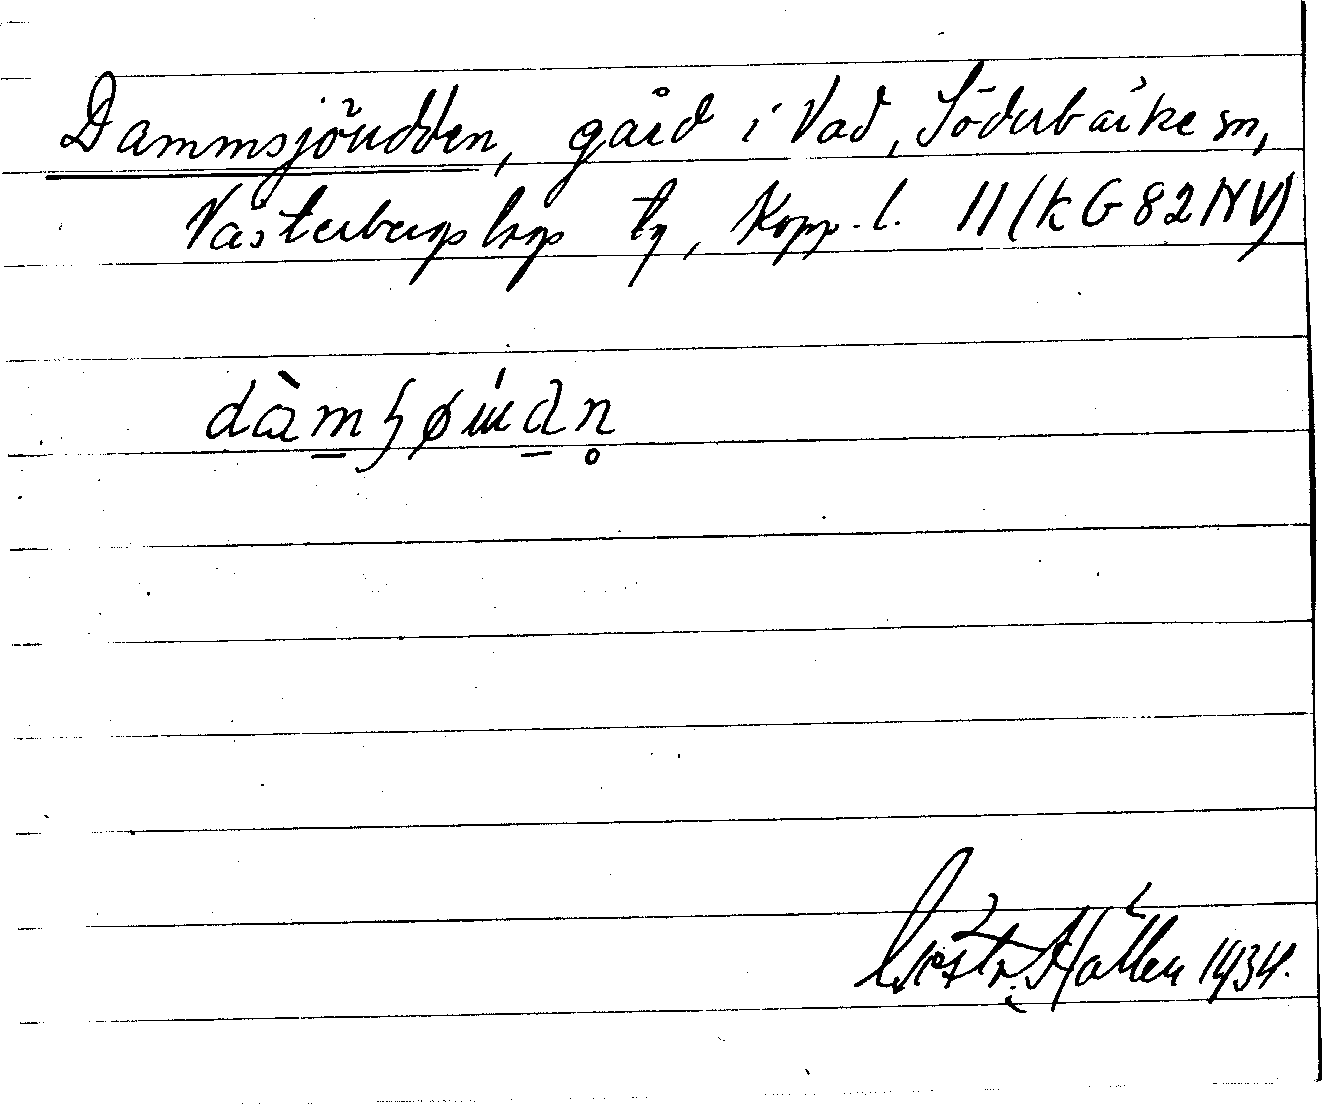 Dammsjöudden, gård i Vad, Söderbärke sn,
Västerbergslags tg, Kopp. l. 11 (k G 82 NV)
dàmʂøu̇dn̥
Hällen 1934.